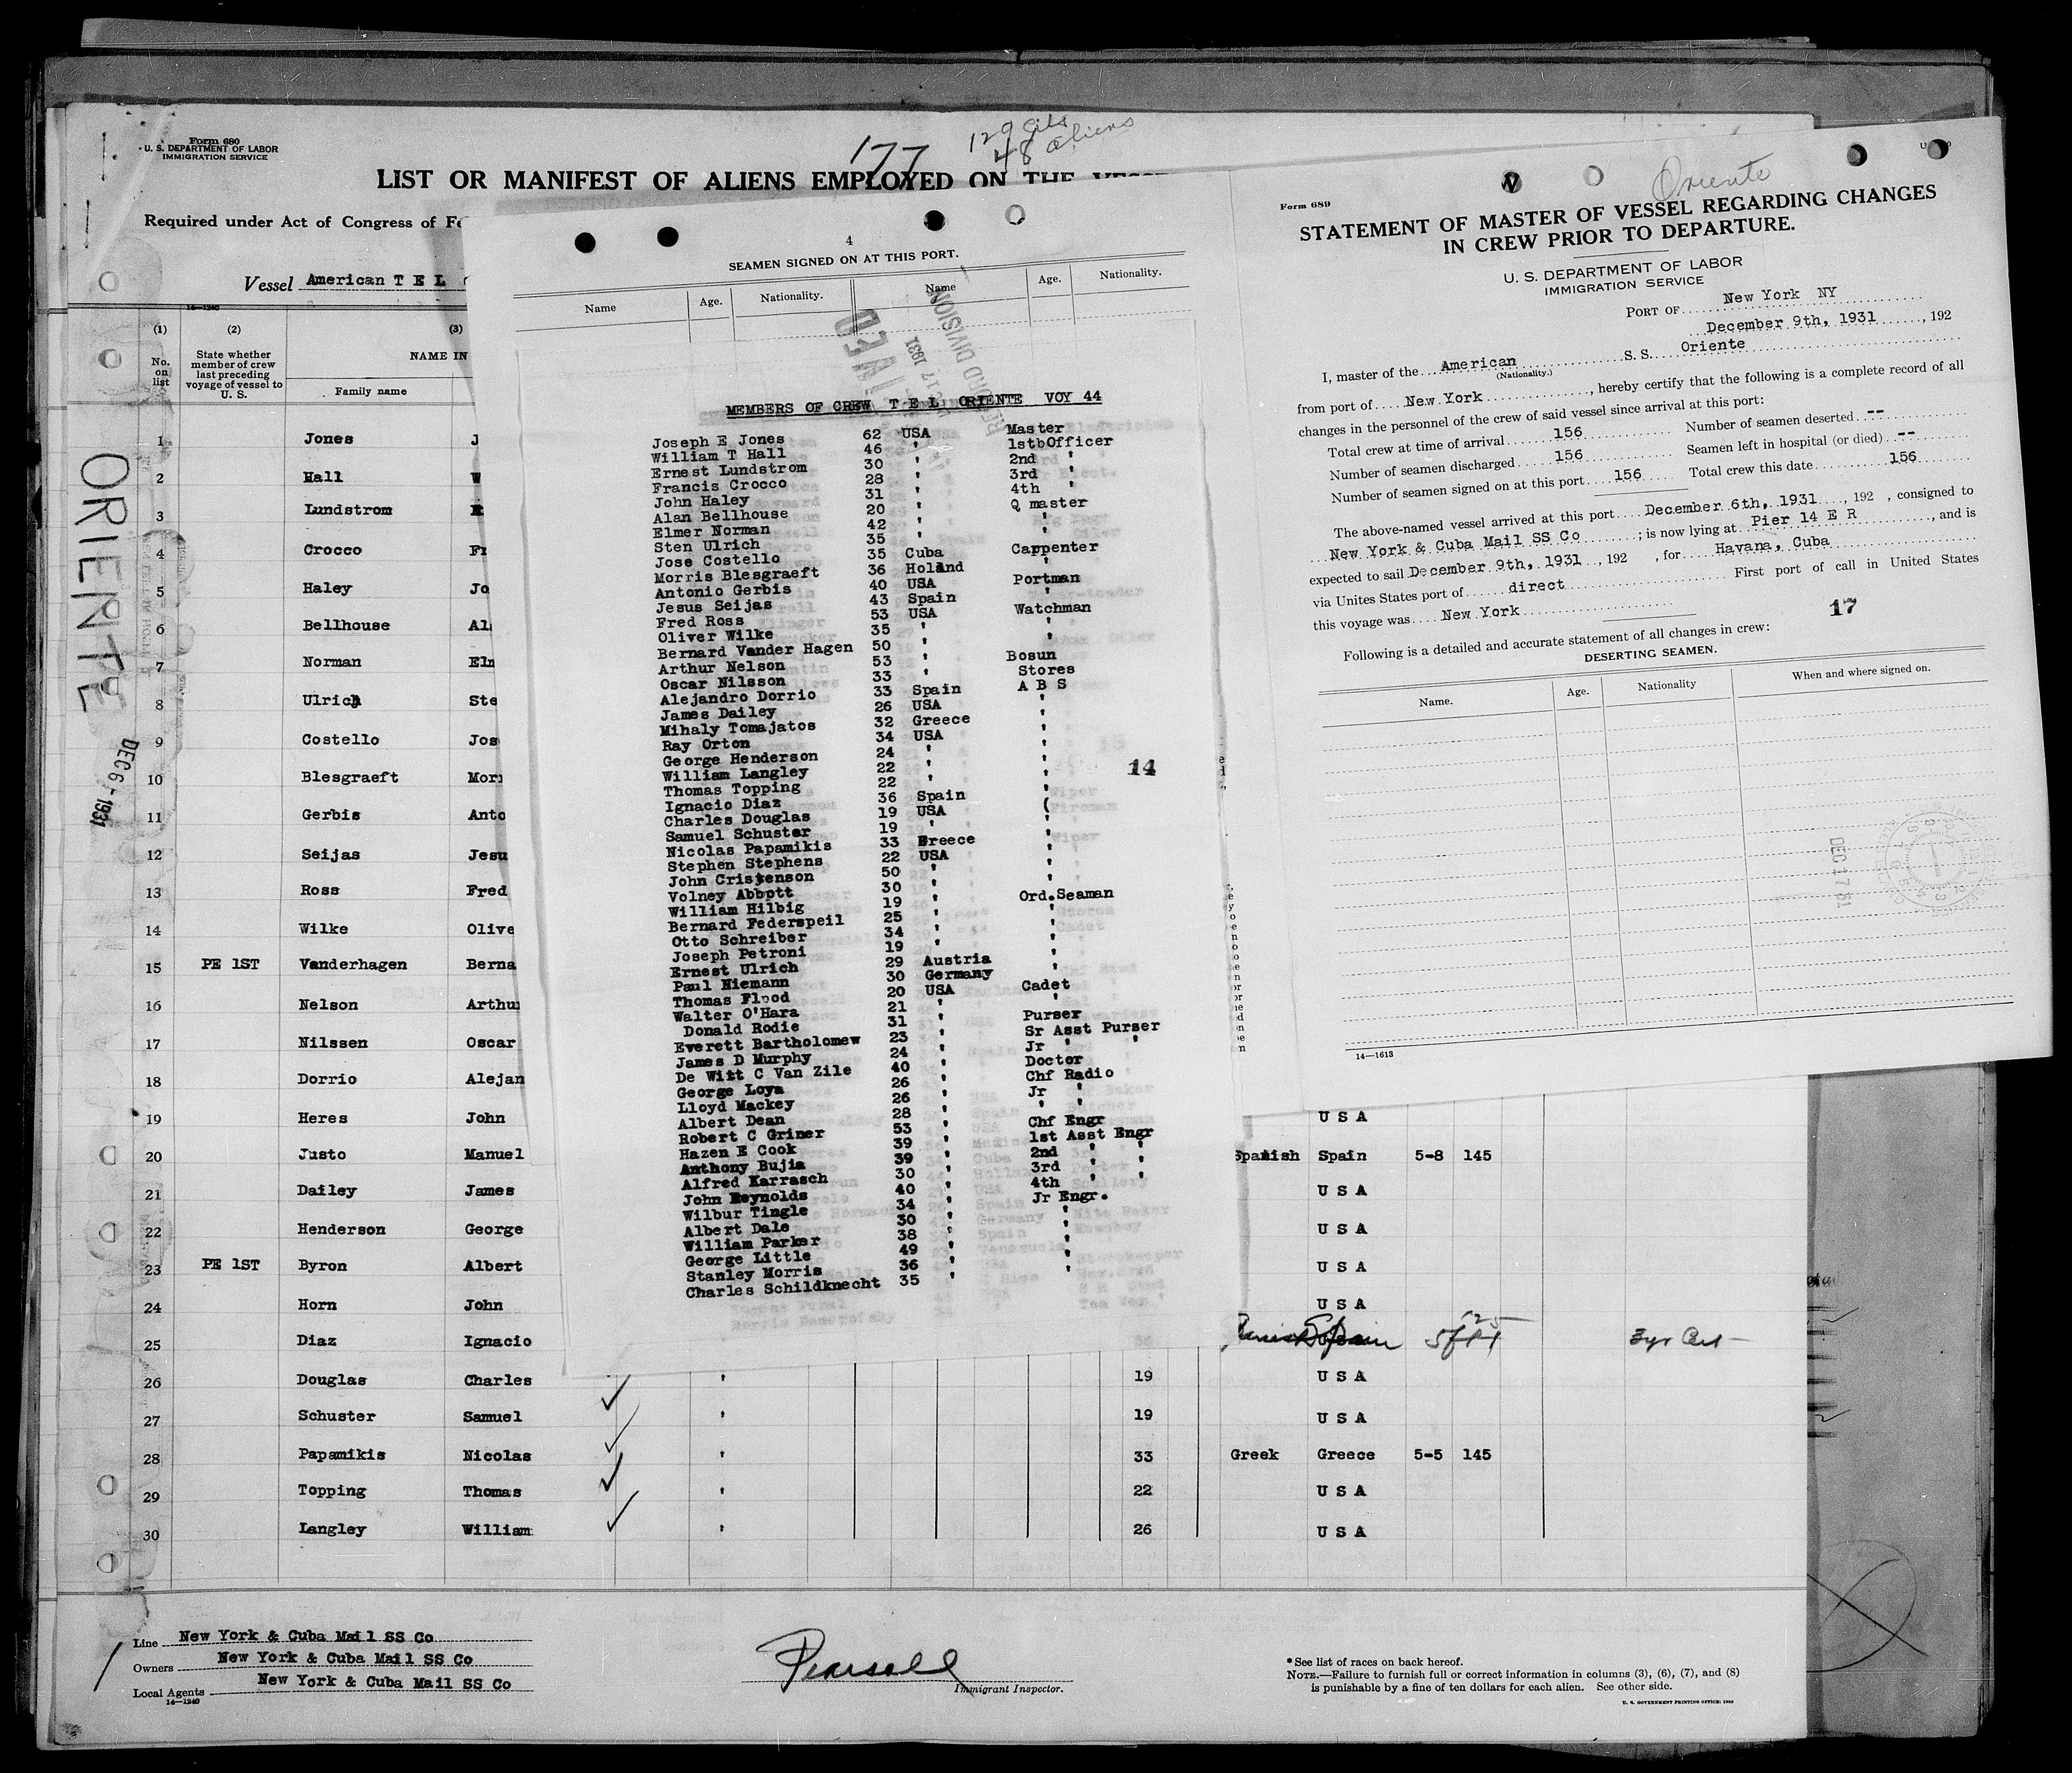 Form 680
U. S. DEPARTMENT OF LABOR
IMMIGRATION SERVICE
177
129 Cits
48 aliens
LIST OR MANIFEST OF ALIENS EMPLOYED ON THE
Required under Act of Congress of
Vessel American T E L
14—1240
(1) (2) (3)
No. on list
State whether member of crew last preceding voyage of vessel to U. S.
NAME IN
Family name
ORIENTE
DEC 6 - 1931
1 Jones J
2 Hall W
3 Lundstrom
4 Crocco Fr
5 Haley Jo
6 Bellhouse Al
7 Norman Elm
8 Ulrich Ste
9 Costello Jos
10 Blesgraeft Mor
11 Gerbis Anto
12 Seijas Jesu
13 Ross Fred
14 Wilke Olive
15 PE 1ST Vanderhagen Berna
16 Nelson Arthu
17 Nilssen Oscar
18 Dorrio Alejan
19 Heres John U S A
20 Justo Manuel Spanish Spain 5-8 145
21 Dailey James U S A
22 Henderson George U S A
23 PE 1ST Byron Albert U S A
24 Horn John U S A
25 Diaz Ignacio 36 Spain
26 Douglas Charles ' 19 U S A
27 Schuster Samuel ' 19 U S A
28 Papamikis Nicolas ' 33 Greek Greece 5-5 145
29 Topping Thomas ' 22 U S A
30 Langley William ' 26 U S A
Line New York & Cuba Mail SS Co
Owners New York & Cuba Mail SS Co
Local Agents New York & Cuba Mail SS Co
14—1240
Pearsall
Immigrant Inspector.
* See list of races on back hereof.
NOTE.—Failure to furnish full or correct information in columns (3), (6), (7), and (8)
is punishable by a fine of ten dollars for each alien. See other side.
U. S. GOVERNMENT PRINTING OFFICE: 1930
4
SEAMEN SIGNED ON AT THIS PORT.
Name Age. Nationality. Name Age. Nationality.
MEMBERS OF CREW T E L ORIENTE VOY 44
Joseph E Jones 62 USA Master
William T Hall 46 ' 1stbOfficer
Ernest Lundstrom 30 ' 2nd '
Francis Crocco 28 ' 3rd '
John Haley 31 ' 4th '
Alan Bellhouse 20 ' Q master
Elmer Norman 42 ' '
Sten Ulrich 35 ' '
Jose Costello 35 Cuba Carpenter
Morris Blesgraeft 36 Holand '
Antonio Gerbis 40 USA Portman
Jesus Seijas 43 Spain '
Fred Ross 53 USA Watchman
Oliver Wilke 35 ' '
Bernard Vander Hagen 50 ' '
Arthur Nelson 53 ' Bosun
Oscar Nilsson 33 ' Stores
Alejandro Dorrio 33 Spain A B S
James Dailey 26 USA '
Mihaly Tomajatos 32 Greece '
Ray Orton 34 USA '
George Henderson 24 ' '
William Langley 22 ' '
Thomas Topping 22 ' '
Ignacio Diaz 36 Spain '
Charles Douglas 19 USA (
Samuel Schuster 19 ' '
Nicolas Papamikis 33 Greece '
Stephen Stephens 22 USA '
John Cristenson 50 ' '
Volney Abbott 30 ' '
William Hilbig 19 ' Ord.Seaman
Bernard Federspeil 25 ' '
Otto Schreiber 34 ' '
Joseph Petroni 19 ' '
Ernest Ulrich 29 Austria '
Paul Niemann 30 Germany '
Thomas Flood 20 USA Cadet
Walter O'Hara 21 ' '
Donald Rodie 31 ' Purser
Everett Bartholomew 23 ' Sr Asst Purser
James D Murphy 24 ' Jr ' '
De Witt C Van Zile 40 ' Doctor
George Loya 26 ' Chf Radio
Lloyd Mackey 26 ' Jr '
Albert Dean 28 ' ' '
Robert C Griner 53 ' Chf Engr
Hazen E Cook 39 ' 1st Asst Engr
Anthony Bujia 39 ' 2nd ' '
Alfred Karrasch 30 ' 3rd ' '
John Reynolds 40 ' 4th ' '
Wilbur Tingle 34 ' Jr Engr.
Albert Dale 30 ' '
William Parker 38 ' '
George Little 49 ' '
Stanley Morris 36 ' '
Charles Schildknecht 35 ' '
14
Oriente
Form 689
STATEMENT OF MASTER OF VESSEL REGARDING CHANGES
IN CREW PRIOR TO DEPARTURE.
U. S. DEPARTMENT OF LABOR
IMMIGRATION SERVICE
PORT OF New York NY
December 9th, 1931, 192
I, master of the American S. S. Oriente
(Nationality.)
from port of New York, hereby certify that the following is a complete record of all
changes in the personnel of the crew of said vessel since arrival at this port:
Total crew at time of arrival 156 Number of seamen deserted --
Number of seamen discharged 156 Seamen left in hospital (or died) --
Number of seamen signed on at this port 156 Total crew this date 156
The above-named vessel arrived at this port December 6th, 1931, 192 , consigned to
New York & Cuba Mail SS Co ; is now lying at Pier 14 E R , and is
expected to sail December 9th, 1931, 192 , for Havana, Cuba
via Unites States port of direct First port of call in United States
this voyage was New York
17
Following is a detailed and accurate statement of all changes in crew:
DESERTING SEAMEN.
Name. Age. Nationality When and where signed on.
DEC 17 31
14—1613